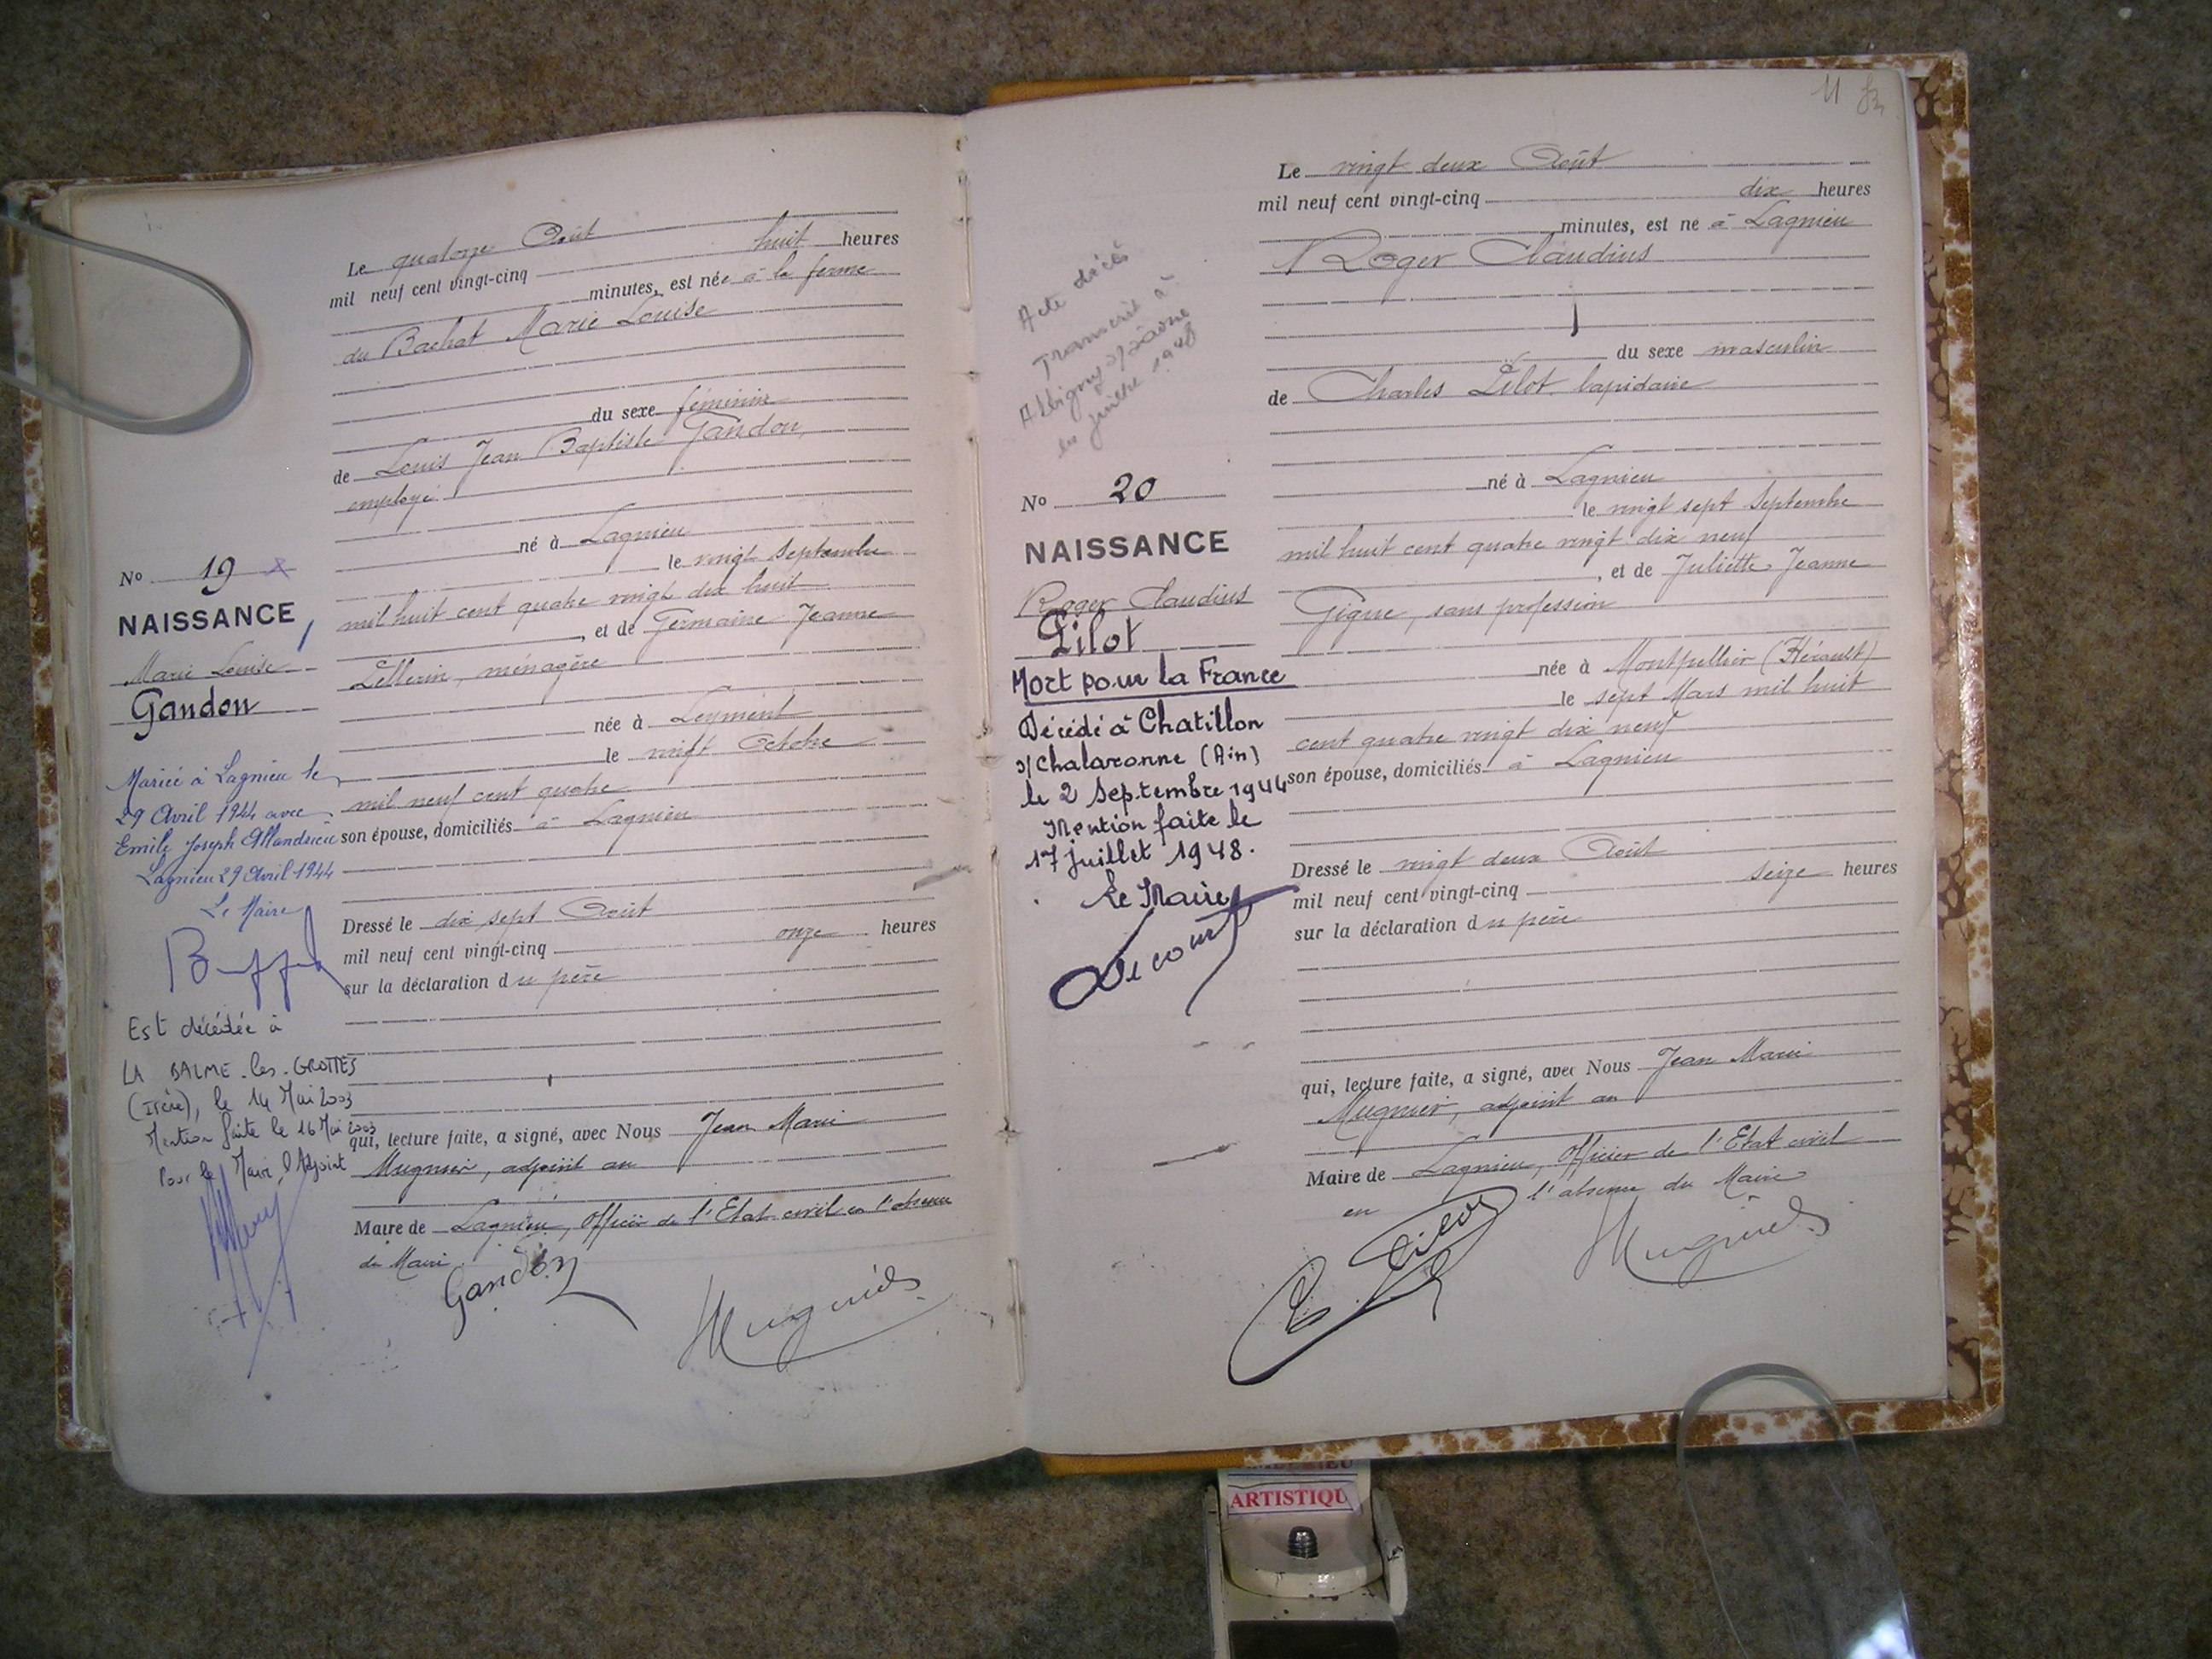 Le quatorze Août
mil neuf cent vingt-cinq huit heures
minutes, est née à la ferme
du Bachat Marie Louise
du sexe féminin
de Louis Jean Baptiste Gandon,
employé
né à Lagnieu
le vingt Septembre
mil huit cent quatre vingt dix huit
, et de Germaine Jeanne
Pellerin, ménagère
née à Leyment
le vingt Octobre
mil neuf cent quatre
son épouse, domiciliés à Lagnieu
Dressé le dix sept Août
mil neuf cent vingt-cinq onze heures
sur la déclaration du père
qui, lecture faite, a signé, avec Nous Jean Marie
Mugnier, adjoint au
Maire de Lagnieu, Officier de l'Etat civil en l'absence
du Maire
Gandon
Mugnier
No 19
NAISSANCE
Marie Louise
Gandon
Mariée à Lagnieu le
29 Avril 1944 avec
Emile Joseph
Lagnieu 29 Avril 1944
Le Maire
Est décédée à
LA BALME-les-GROTTES
(Isère), le 14 Mai 2003
Mention faite le 16 Mai 2003
Pour le Maire, l'Adjoint
11
Le vingt deux Août
mil neuf cent vingt-cinq dix heures
minutes, est né à Lagnieu
Roger Claudius
du sexe masculin
de Charles Pilot lapidaire
né à Lagnieu
le vingt sept Septembre
mil huit cent quatre vingt dix neuf
, et de Juliette Jeanne
Gigue, sans profession
née à Montpellier (Hérault)
le sept Mars mil huit
cent quatre vingt dix neuf
son épouse, domiciliés à Lagnieu
Dressé le vingt deux Août
mil neuf cent vingt-cinq seize heures
sur la déclaration du père
qui, lecture faite, a signé, avec Nous Jean Marie
Mugnier, adjoint au
Maire de Lagnieu, Officier de l'Etat civil
en l'absence du Maire
Pilot
Mugnier
Acte décès
Transcrit à
Albigny s/ Saône
en juillet 1948
No 20
NAISSANCE
Roger Claudius
Pilot
Mort pour la France
Décédé à Chatillon
s/Chalaronne (Ain)
le 2 Septembre 1944
Mention faite le
17 juillet 1948.
Le Maire
ARTISTIQU